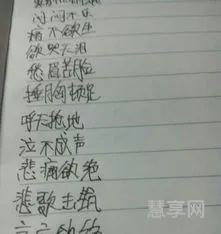 闷闷不乐
痛不欲生
欲哭无泪
愁眉苦脸
捶胸顿足
呼天抢地
泣不成声
悲痛欲绝
悲歌击筑
慧享网